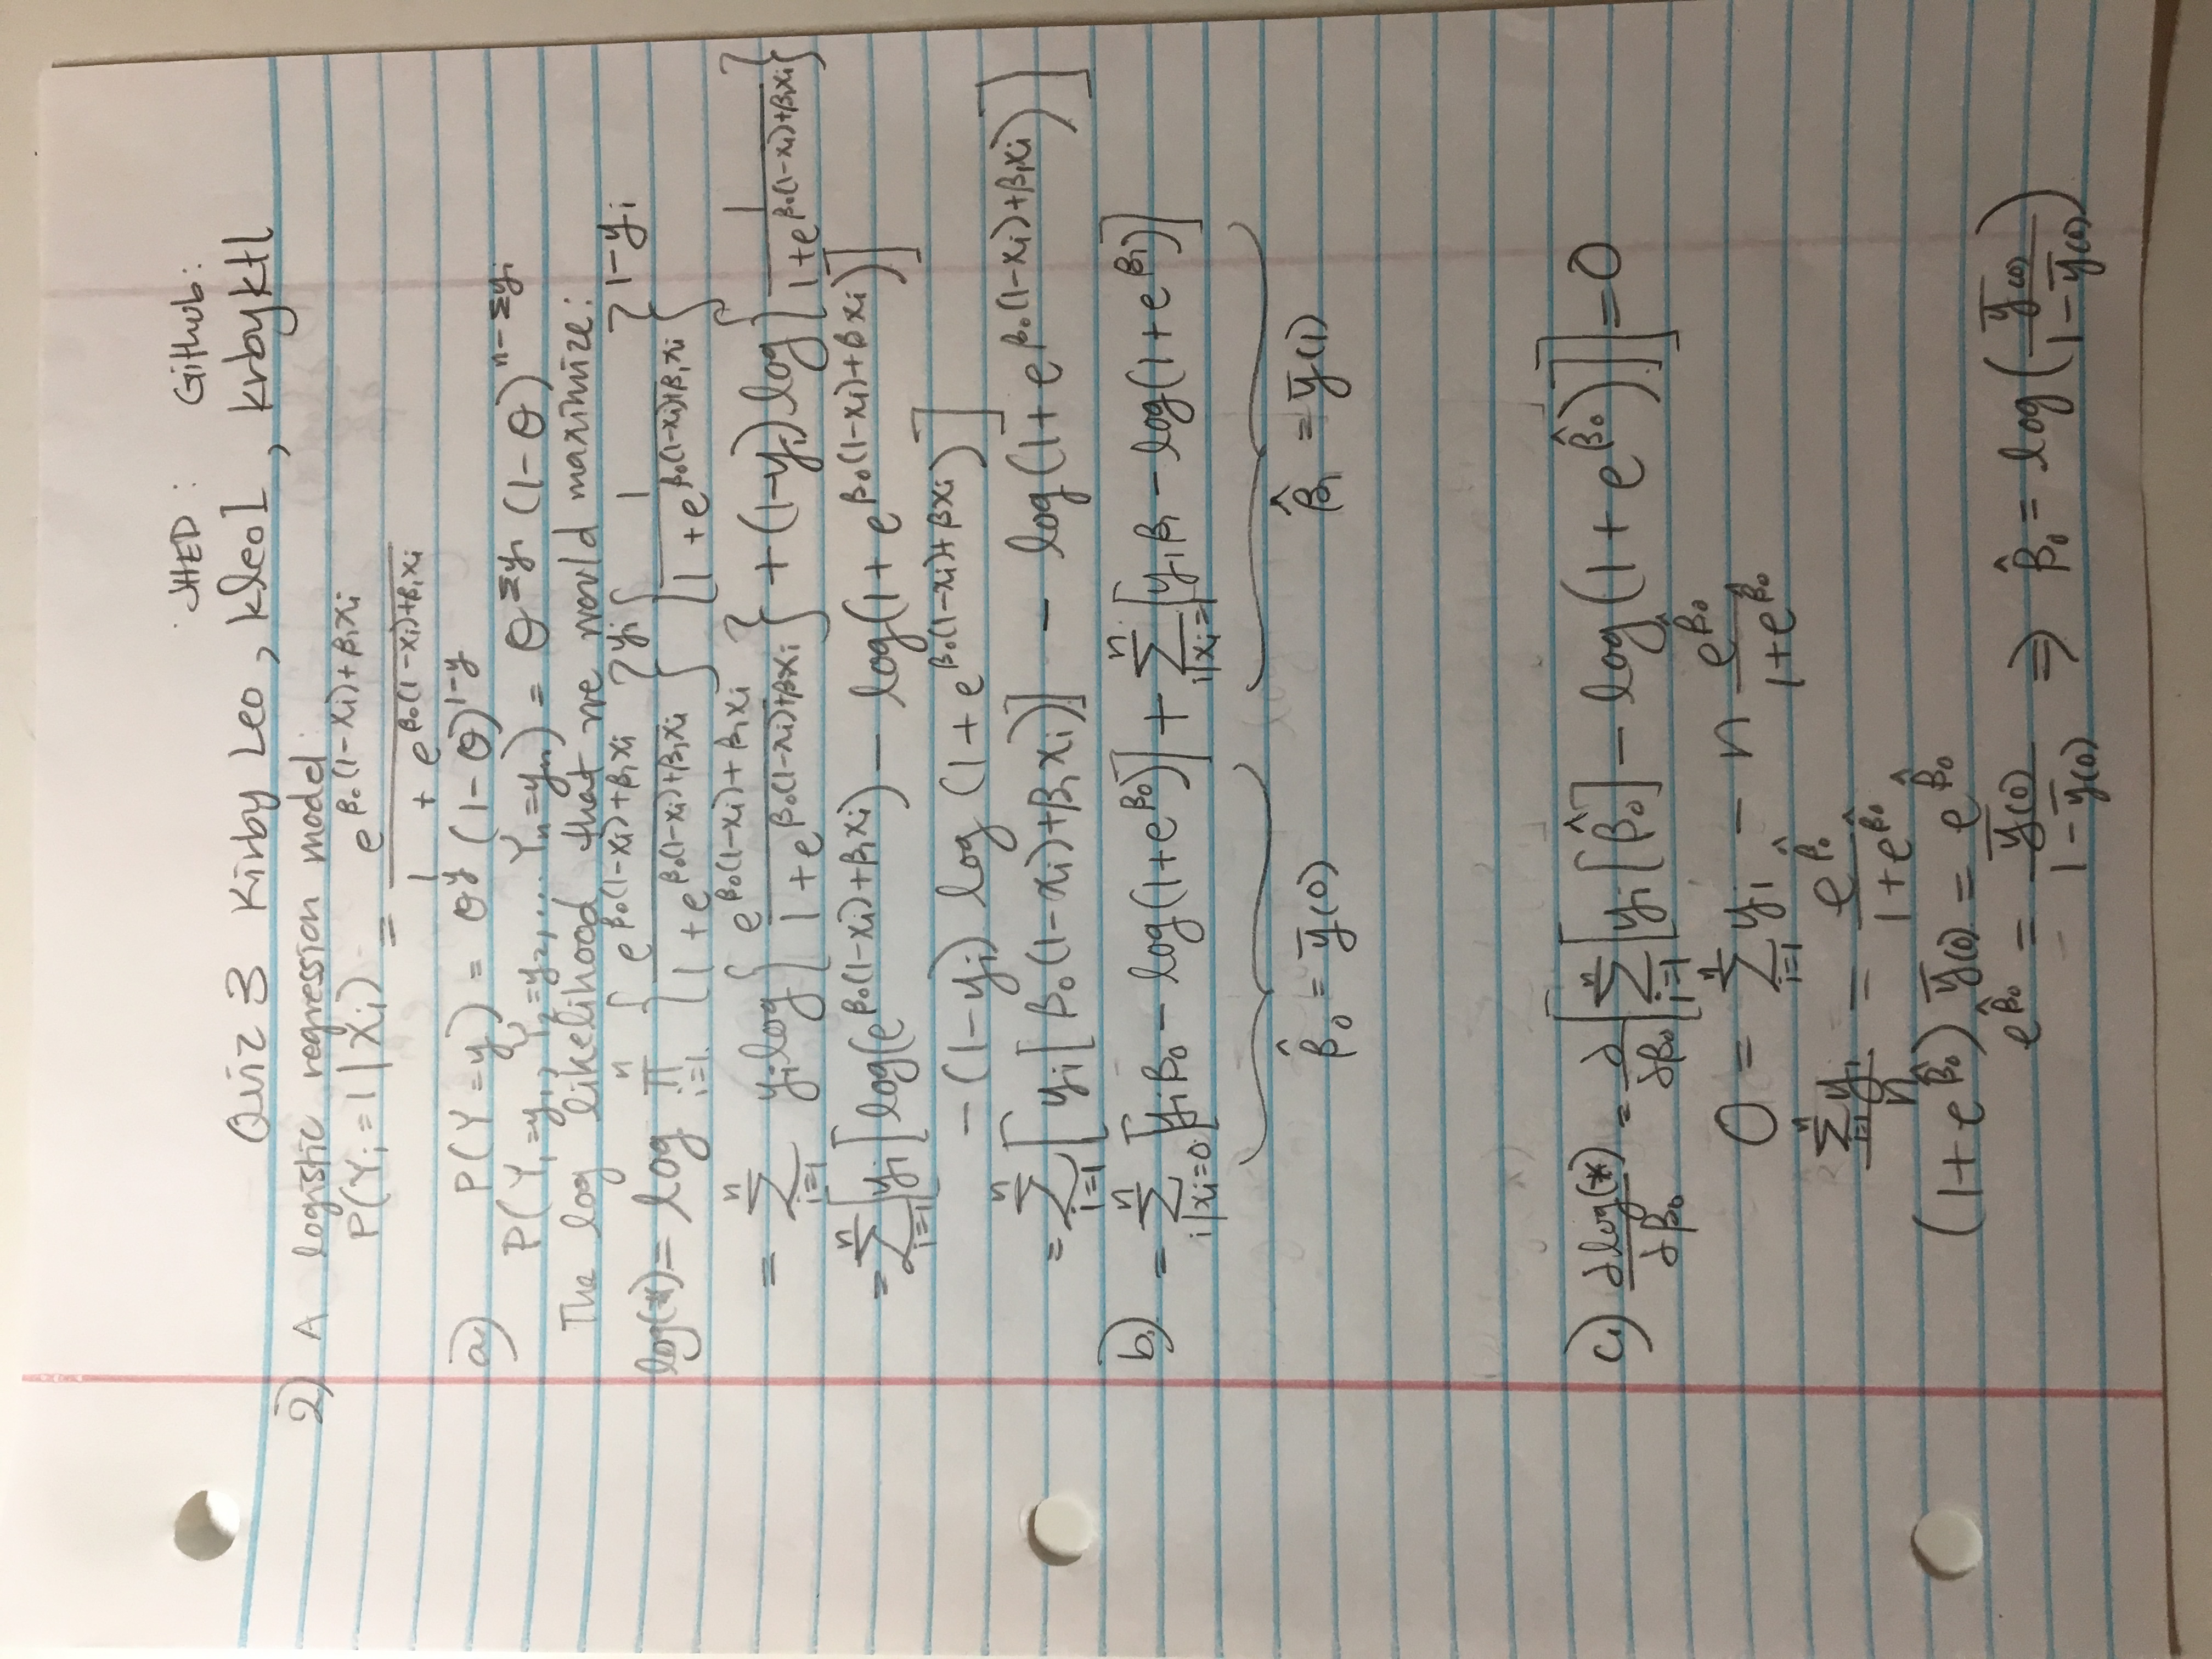 JHED : Github:
Quiz 3 Kirby Leo, kleo1, krbyktl
2) A logistic regression model:
P(Yᵢ=1|Xᵢ) = e^{β₀(1-Xᵢ)+β₁xᵢ} / (1 + e^{β₀(1-xᵢ)+β₁xᵢ})
a) P(Y=y) = θ^y (1-θ)^{1-y}
P(Y₁=y₁, Y₂=y₂, ... Yₙ=yₙ) = θ^{Σyᵢ} (1-θ)^{n-Σyᵢ}
The log likelihood that we would maximize:
log(*) = log ∏_{i=1}^{n} {e^{β₀(1-xᵢ)+β₁xᵢ} / (1+e^{β₀(1-xᵢ)+β₁xᵢ})}^{yᵢ} {1 / (1+e^{β₀(1-xᵢ)+β₁xᵢ})}^{1-yᵢ}
= Σ_{i=1}^{n} yᵢ log{e^{β₀(1-xᵢ)+β₁xᵢ} / (1+e^{β₀(1-xᵢ)+β₁xᵢ})} + (1-yᵢ) log{1 / (1+e^{β₀(1-xᵢ)+β₁xᵢ})}
= Σ_{i=1}^{n} [yᵢ[log(e^{β₀(1-xᵢ)+β₁xᵢ}) - log(1+e^{β₀(1-xᵢ)+βxᵢ})]
- (1-yᵢ) log (1+e^{β₀(1-xᵢ)+βxᵢ})]
= Σ_{i=1}^{n} [yᵢ[β₀(1-xᵢ)+β₁xᵢ)] - log(1+e^{β₀(1-xᵢ)+β₁xᵢ})]
b) = Σ_{i|xᵢ=0}^{n} [yᵢβ₀ - log(1+e^{β₀})] + Σ_{i|xᵢ=1}^{n} [yᵢβ₁ - log(1+e^{β₁})]
β̂₀ = ȳ(0) β̂₁ = ȳ(1)
c) ∂log(*)/∂β₀ = ∂/∂β₀ [Σ_{i=1}^{n} [yᵢ[β̂₀] - log(1+e^{β̂₀})]] = 0
0 = Σ_{i=1}^{n} yᵢ - n e^{β̂₀} / (1+e^{β̂₀})
Σ_{i=1}^{n} yᵢ / n = e^{β̂₀} / (1+e^{β̂₀})
(1+e^{β̂₀}) ȳ(0) = e^{β̂₀}
e^{β̂₀} = ȳ(0) / (1-ȳ(0)) ⇒ β̂₀ = log(ȳ(0) / (1-ȳ(0)))